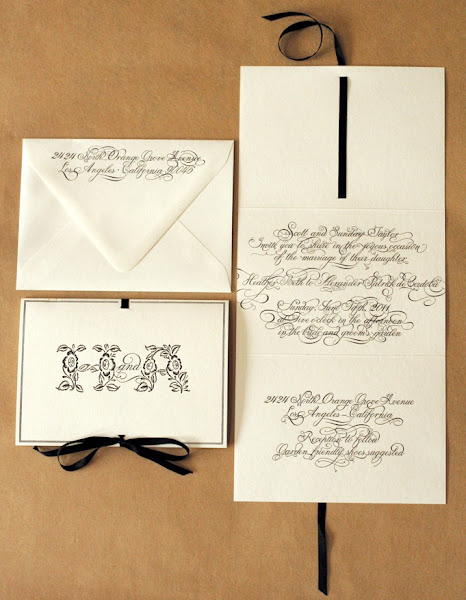 2424 North Orange Grove Avenue
Los Angeles - California 90046
H and A
Scott and Sunday Taylor
Invite you to share in the joyous occasion
of the marriage of their daughter
Heather Beth to Alexander Patrick de Cordoba
Sunday, June Fifth, 2011
at five o'clock in the afternoon
in the bride and groom's garden
2424 North Orange Grove Avenue
Los Angeles - California
Reception to follow
Garden friendly shoes suggested